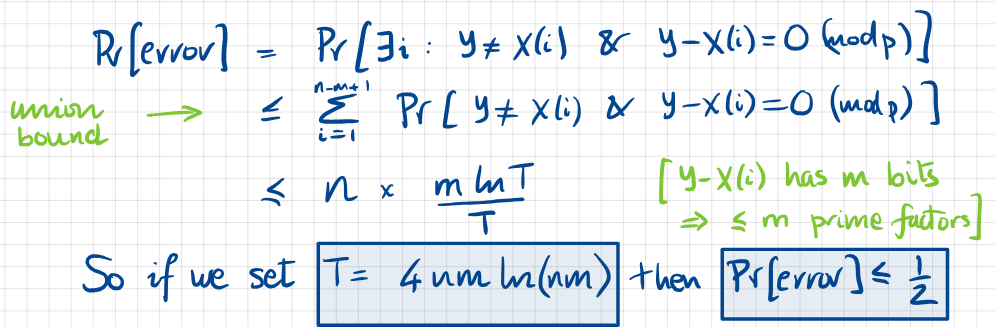 Pr[error] = Pr[∃i : y ≠ X(i) & y-X(i) = 0 (mod p)]
union bound → ≤ ∑_{i=1}^{n-m+1} Pr[ y ≠ X(i) & y-X(i) = 0 (mod p) ]
≤ n × \frac{m ln T}{T} [ y-X(i) has m bits ⇒ ≤ m prime factors]
So if we set T = 4nm ln(nm) then Pr[error] ≤ \frac{1}{2}